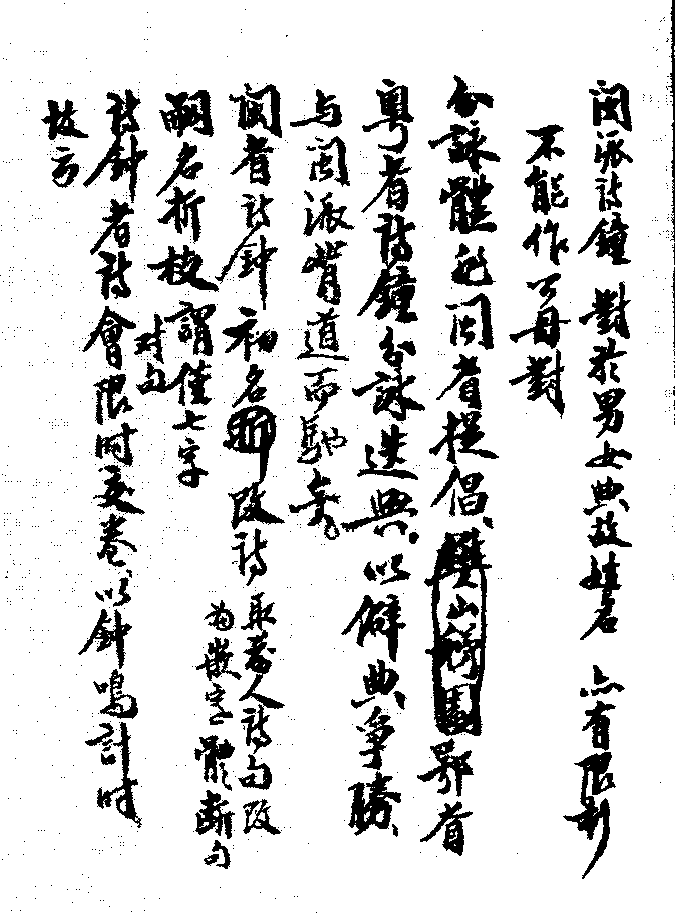 閩派詩鐘 對於男女典故姓名 亦有限制
不能作公母對
分詠體 閩省提倡、鄂省
粵省詩鐘分詠迭興、以僻典爭勝、
与閩派背道而馳矣。
閩省詩鈡 初名 改詩 取前人詩句改
為嵌字體斷句
嗣名折枝 謂僅七字
对句
詩鈡者詩會限时交卷、以鈡鳴計时
故云